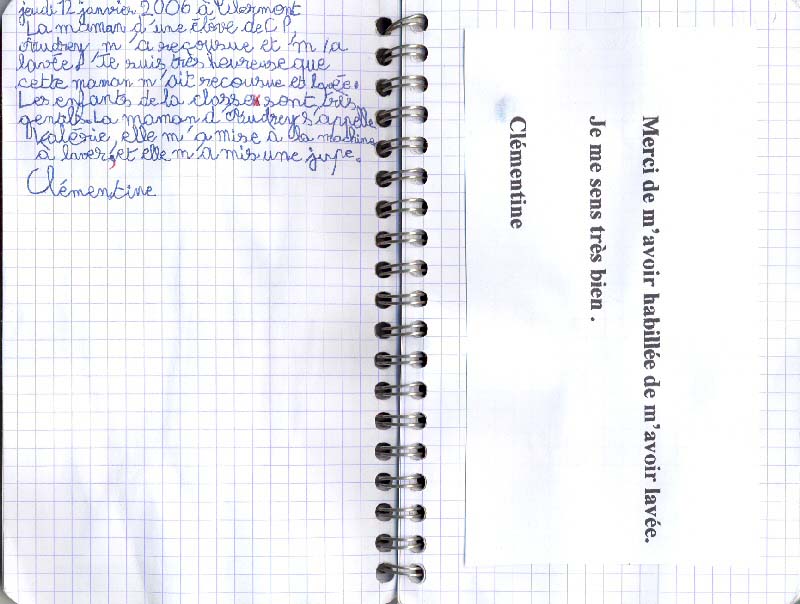 jeudi 12 janvier 2006 à Clermont
La maman d'une élève de CP
Audrey m'a recousue et m'a
lavée. Je suis très heureuse que
cette maman m'ait recousue et lavée.
Les enfants de la classe sont très
genials. La maman d'Audrey s'appelle
Valérie, elle m'a mise à la machine
à laver, et elle m'a mis une jupe.
Clémentine
Merci de m'avoir habillée de m'avoir lavée.
Je me sens très bien .
Clémentine